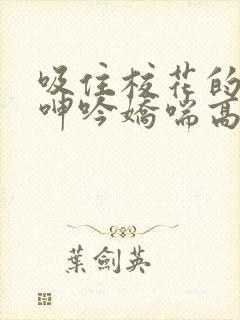 吸住校花的
呻吟嬌喘高
葉劍英